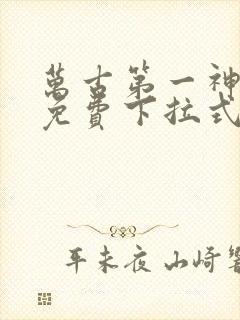 萬古第一神
免費下拉式
平未夜 山崎響